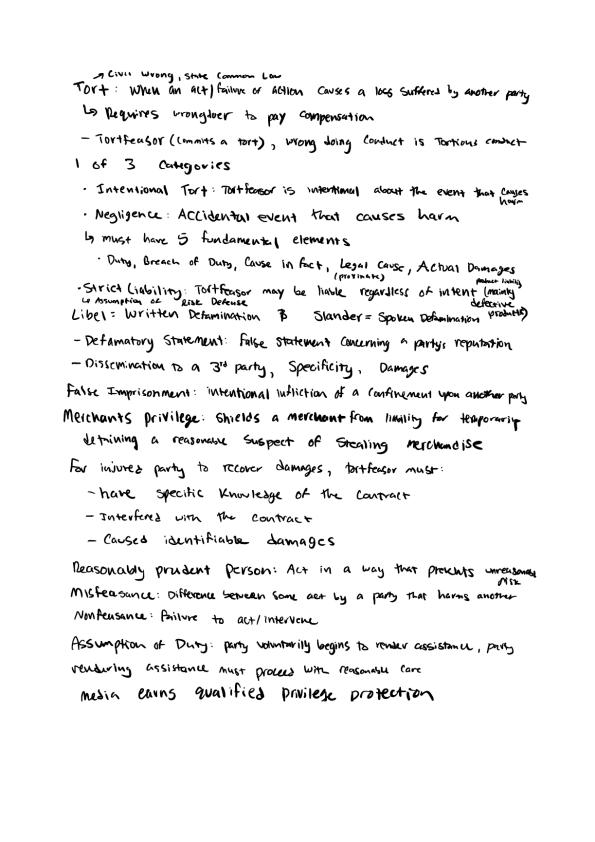 → Civil Wrong, State Common Law
Tort: When an act/failure of action causes a loss suffered by another party
↳ Requires wrongdoer to pay compensation
- Tortfeasor (commits a tort), wrong doing conduct is Tortious conduct
1 of 3 Categories
• Intentional Tort: Tortfeasor is intentional about the event that causes harm
• Negligence: Accidental event that causes harm
↳ must have 5 fundamental elements
• Duty, Breach of Duty, Cause in fact, Legal Cause, Actual Damages
(proximate)
• Strict Liability: Tortfeasor may be liable regardless of intent (mainly product liability defective products)
↳ Assumption of Risk Defense
Libel = Written Defamination & Slander = Spoken Defamination
- Defamatory Statement: False Statement concerning a party's reputation
- Dissemination to a 3rd party, Specificity, Damages
False Imprisonment: intentional infliction of a confinement upon another party
Merchants Privilege: Shields a merchant from liability for temporarily
detaining a reasonable suspect of Stealing merchandise
For injured party to recover damages, tortfeasor must:
- have specific Knowledge of the Contract
- Interfered with the Contract
- Caused identifiable damages
Reasonably prudent person: Act in a way that prevents unreasonable risk
Misfeasance: Difference between some act by a party that harms another
Nonfeasance: Failure to act/intervene
Assumption of Duty: party voluntarily begins to render assistance, party
rendering assistance must proceed with reasonable care
media earns qualified privilege protection